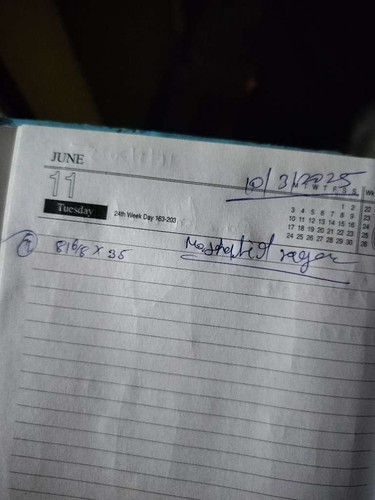 JUNE
11
10/3/2025
Tuesday
24th Week Day 163-203
M W T F S S Wk
1 2
3 4 5 6 7 8 9
10 11 12 13 14 15 16
17 18 19 20 21 22 23
24 25 26 27 28 29 30 26
① 8/6/8 × 35
nagar